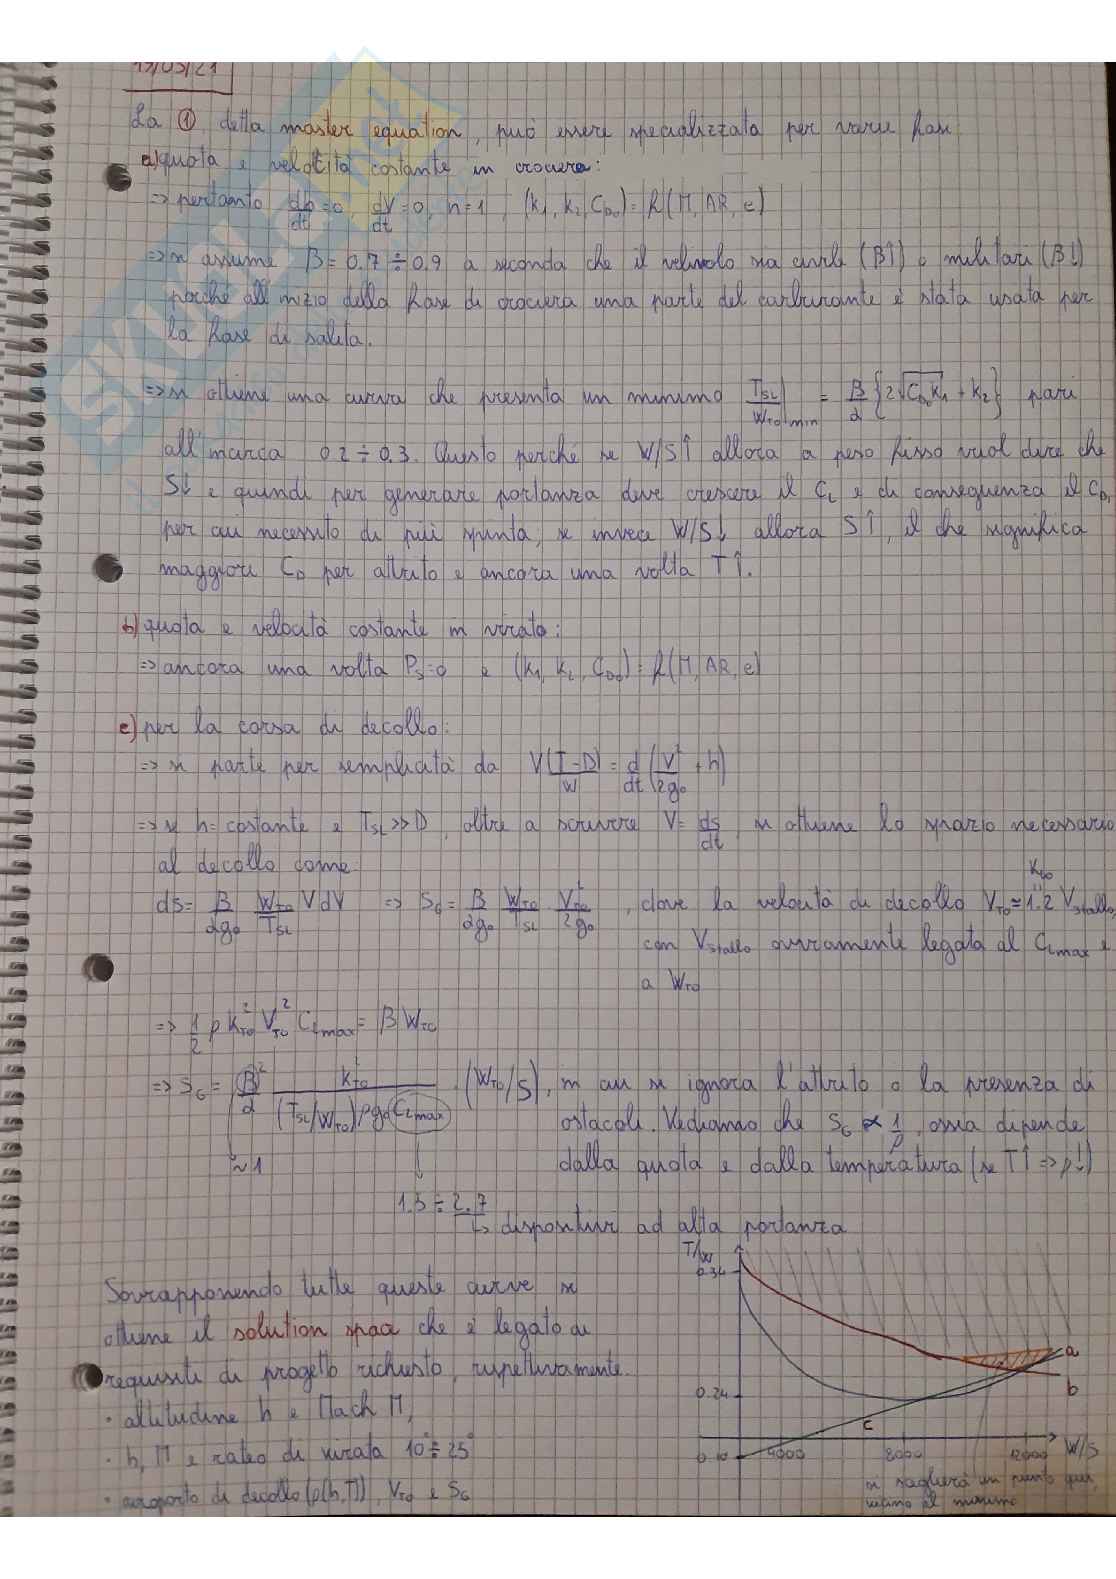 19/03/21
La ①, detta master equation, può essere specializzata per varie fasi
a) quota e velocità costante in crociera:
=> pertanto dh/dt=0, dV/dt=0, n=1, (K₁, K₂, C_D₀)=f(M, AR, e)
=> si assume β=0.7÷0.9 a seconda che il velivolo sia civile (β↑) o militare (β↓)
poiché all'inizio della fase di crociera una parte del carburante è stata usata per
la fase di salita.
=> si ottiene una curva che presenta un minimo T_SL/W_TO|min = β/α {2√(C_D₀K₁) + K₂} pari
all'incirca 0.2÷0.3. Questo perché se W/S↑ allora a peso fisso vuol dire che
S↓ e quindi per generare portanza deve crescere il C_L e di conseguenza il C_Di
per cui necessito di più spinta; se invece W/S↓ allora S↑, il che significa
maggiore C_D per attrito e ancora una volta T↑.
b) quota e velocità costante in virata:
=> ancora una volta P_s=0 e (K₁, K₂, C_D₀)=f(M, AR, e)
c) per la corsa di decollo:
=> si parte per semplicità da V(T-D)/W = d/dt (V²/2g₀ + h)
=> se h=costante e T_SL>>D, oltre a scrivere V=ds/dt si ottiene lo spazio necessario
al decollo come:
K_TO
ds= β/αg₀ W_TO/T_SL VdV => S_G= β/αg₀ W_TO/T_SL V_TO²/2g₀, dove la velocità di decollo V_TO≈1.2 V_stallo,
con V_stallo ovviamente legata al C_Lmax e
a W_TO
=> 1/2 ρ K_TO² V_TO² C_Lmax= βW_TO
=> S_G= (β)²/α K_TO²/((T_SL/W_TO)ρg₀C_Lmax) · (W_TO/S), in cui si ignora l'attrito o la presenza di
ostacoli. Vediamo che S_G ∝ 1/ρ, ossia dipende
~1 dalla quota e dalla temperatura (se T↑=>ρ↓)
1.5÷2.7
↳ dispositivi ad alta portanza
Sovrapponendo tutte queste curve si
ottiene il solution space che è legato ai
requisiti di progetto richiesto, rispettivamente:
· altitudine h e Mach M,
· h, M e rateo di virata 10°÷25°
· aeroporto di decollo (ρ(h,T)), V_TO e S_G
T/W
0.34
a
b
0.24
c
0.10
4000
8000
12000
W/S
si sceglierà un punto qui,
vicino al minimo
SKUOLA.net